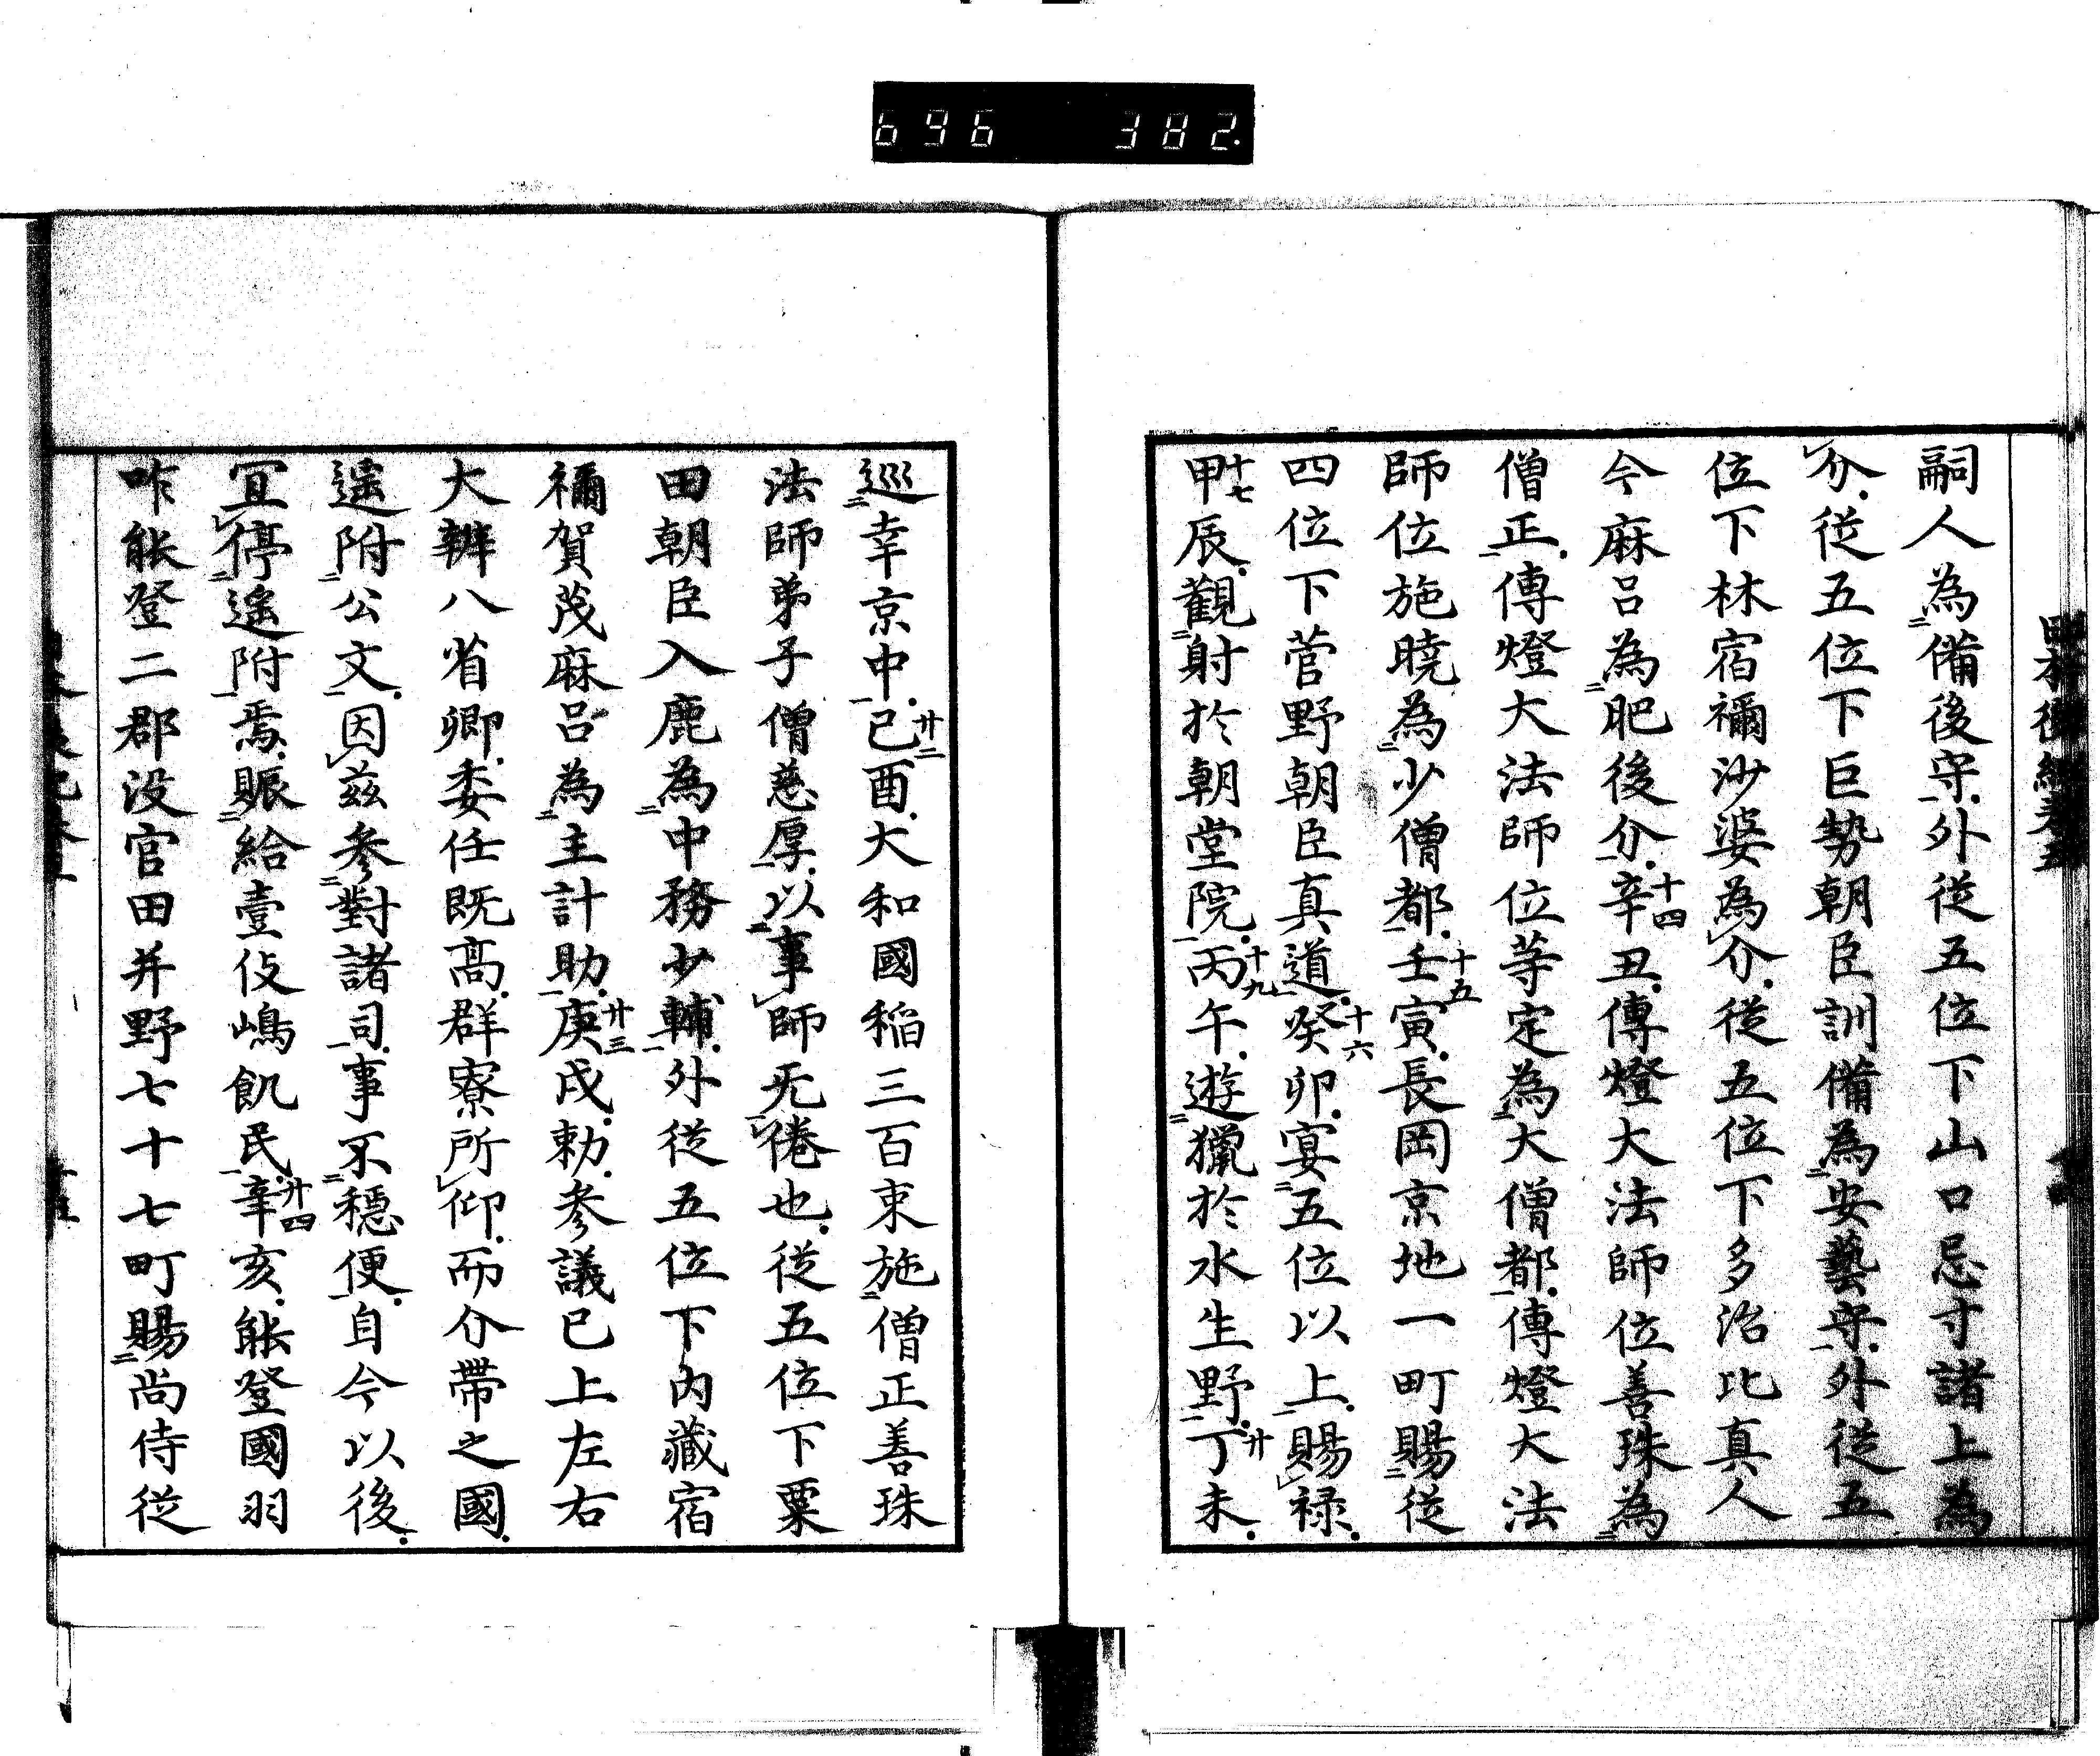 696 382.
嗣人為備後守外從五位下山口忌寸諸上為
介從五位下巨勢朝臣訓備為安藝守外從五
位下林宿禰沙婆為介從五位下多治比真人
今麻呂為肥後介十四辛丑傳燈大法師位善珠為
僧正傳燈大法師位等定為大僧都傳燈大法
師位施曉為少僧都十五壬寅長岡京地一町賜從
四位下菅野朝臣真道十六癸卯宴五位以上賜禄
十七甲辰觀射於朝堂院十九丙午遊獵於水生野廿丁未
巡幸京中廿二己酉大和國稲三百束施僧正善珠
法師弟子僧慈厚以事師无倦也從五位下粟
田朝臣入鹿為中務少輔外從五位下內藏宿
禰賀茂麻呂為主計助廿三庚戌勅參議已上左右
大辨八省卿委任既高群寮所仰而介帶之國
遥附公文因茲參對諸司事不穩便自今以後
宜停遥附焉賑給壹伎嶋飢民廿四辛亥能登國羽
咋能登二郡没官田并野七十七町賜尚侍從